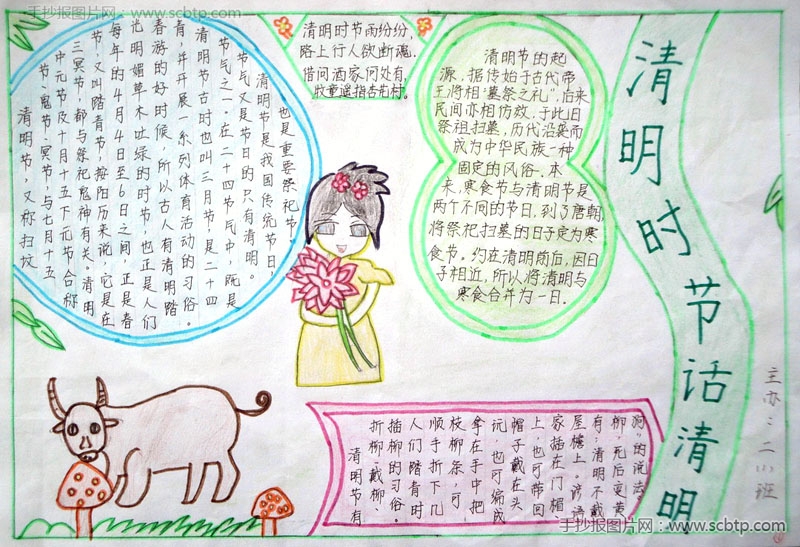 手抄报图片网:www.scbtp.com
清明时节话清明
清明时节雨纷纷,
路上行人欲断魂。
借问酒家何处有,
牧童遥指杏花村。
清明节,又称扫坟
节、鬼节、冥节,与七月十五
中元节及十月十五下元节合称
三冥节,都与祭祀鬼神有关。清明
节,又叫踏青节,按阳历来说,它是在
每年的4月4日至6日之间,正是春
光明媚草木吐绿的时节,也正是人们
春游的好时候,所以古人有清明踏
青,并开展一系列体育活动的习俗。
清明节古时也叫三月节,是二十四
节气之一。在二十四节气中,既是
节气又是节日的只有清明。
清明节是我国传统节日,
也是重要祭祀节。
清明节的起
源,据传始于古代帝
王将相"墓祭之礼",后来
民间亦相仿效,于此日
祭祖扫墓,历代沿袭而
成为中华民族一种
固定的风俗。本
来,寒食节与清明节是
两个不同的节日,到了唐朝,
将祭祀扫墓的日子定为寒
食节。约在清明前后,因日
子相近,所以将清明与
寒食合并为一日.
清明节有
折柳、戴柳、
插柳的习俗。
人们踏青时
顺手折下几
枝柳条,可
拿在手中把
玩,也可编成
帽子戴在头
上,也可带回
家插在门楣、
屋檐上。谚语
有:清明不戴
柳,死后变黄
狗"的说法。
主办:二(1)班
手抄报图片网:www.scbtp.com